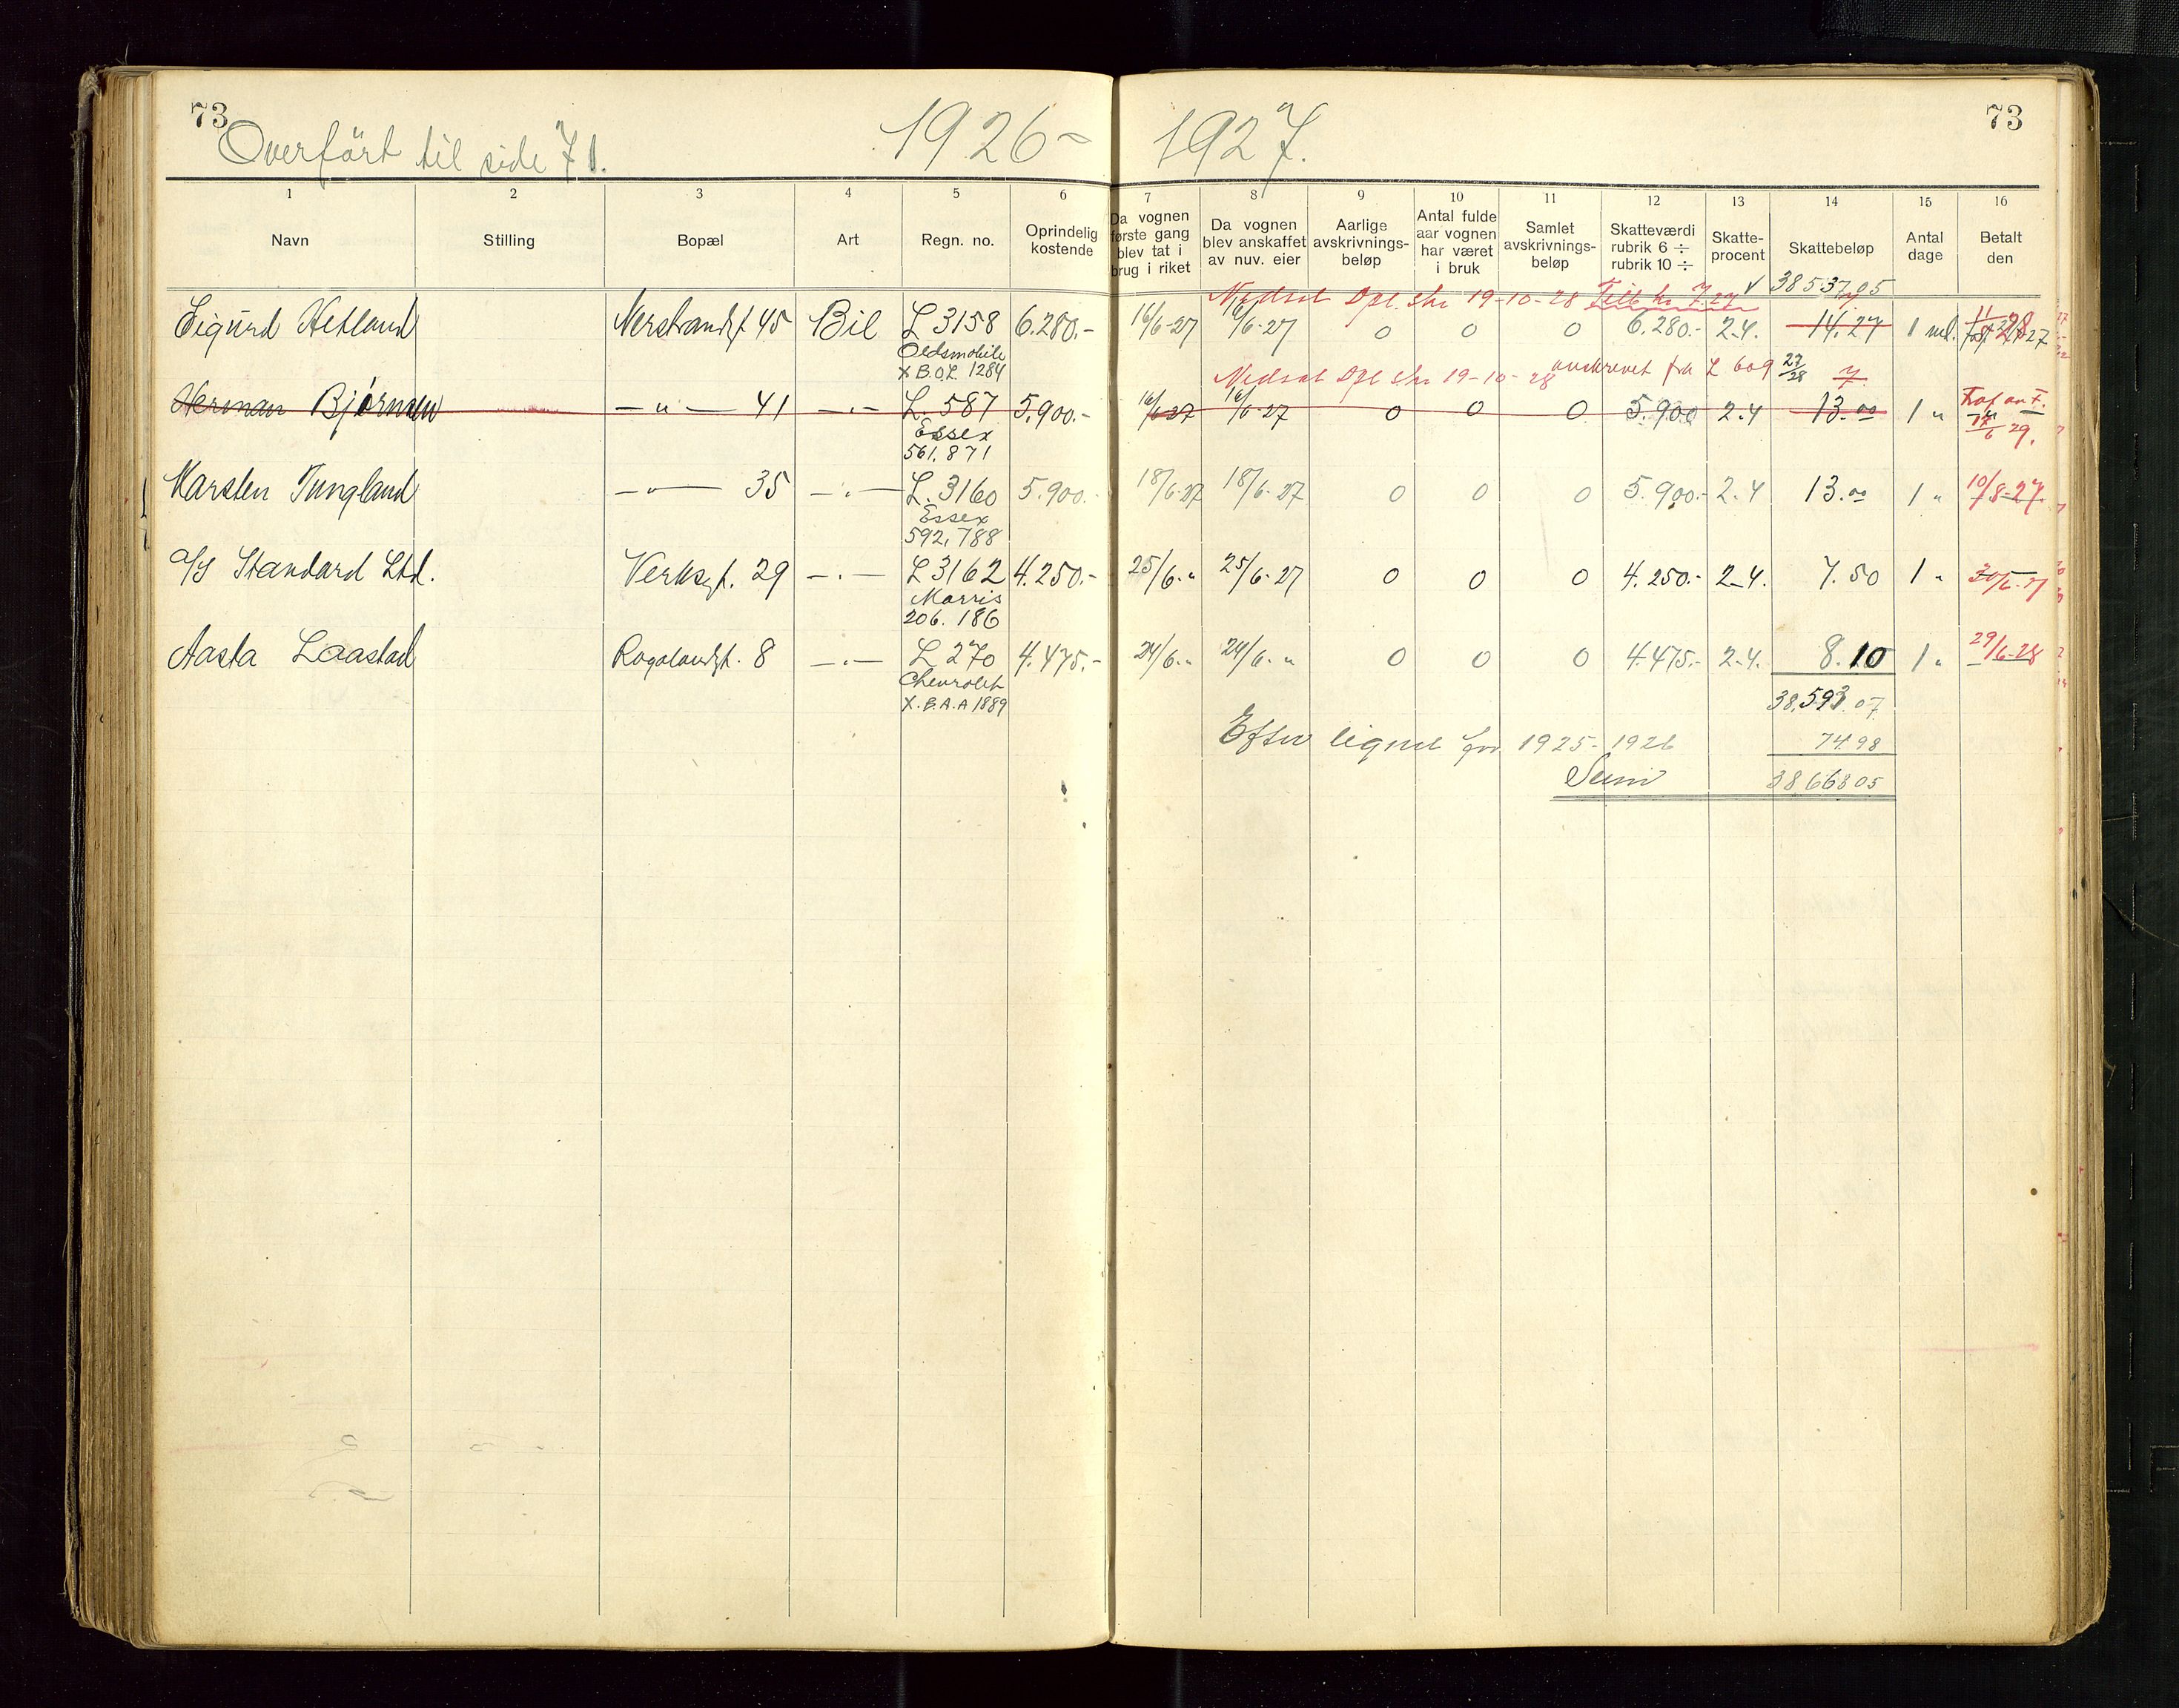 73 1926- 1927. 73
Overført til side 71.
1 2 3 4 5 6 7 8 9 10 11 12 13 14 15 16
Navn Stilling Bopæl Art Regn. no. Oprindelig kostende Da vognen første gang blev tat i brug i riket Da vognen blev anskaffet av nuv. eier Aarlige avskrivnings-beløp Antal fulde aar vognen har været i bruk Samlet avskrivnings-beløp Skatteværdi rubrik 6 ÷ rubrik 10 ÷ Skatte-procent Skattebeløp Antal dage Betalt den
38537,05
Nedsat Dpt. skr 19-10-28
Sigurd Hetland Nerstrandgt 45 Bil L 3158 6.280.- 16/6-27 16/6-27 0 0 0 6.280.- 2.4. 14.27 1 md.
Oldsmobile
X B.O.L. 1284
Nedsat Dpt skr 19-10-28 fra L 609 27/28 7
Herman Bjørnsen -"- 41 -"- L. 587 5.900.- 16/6-27 16/6-27 0 0 0 5.900 2.4 13.00 1 "
17/6 29.
Essex
561.871
Karsten Tungland -"- 35 -"- L. 3160 5.900.- 18/6-27 18/6-27 0 0 0 5.900.- 2.4 13.00 1 " 10/8-27.
Essex
592,788
A/S Standard Ltd. Verksgt. 29 -"- L 3162 4.250.- 25/6-" 25/6-27 0 0 0 4.250.- 2.4. 7.50 1 " 30/6-27
Morris
206.186
Aasta Laastad Rogalandgt. 8 -"- L 270 4.475.- 24/6-" 24/6-" 0 0 0 4.475.- 2.4. 8.10 1 " 29/6-28
Chevrolet
X.B.A.A 1889
38,593.07
Efter lignet for 1925-1926 74.98
Sum 38,668.05